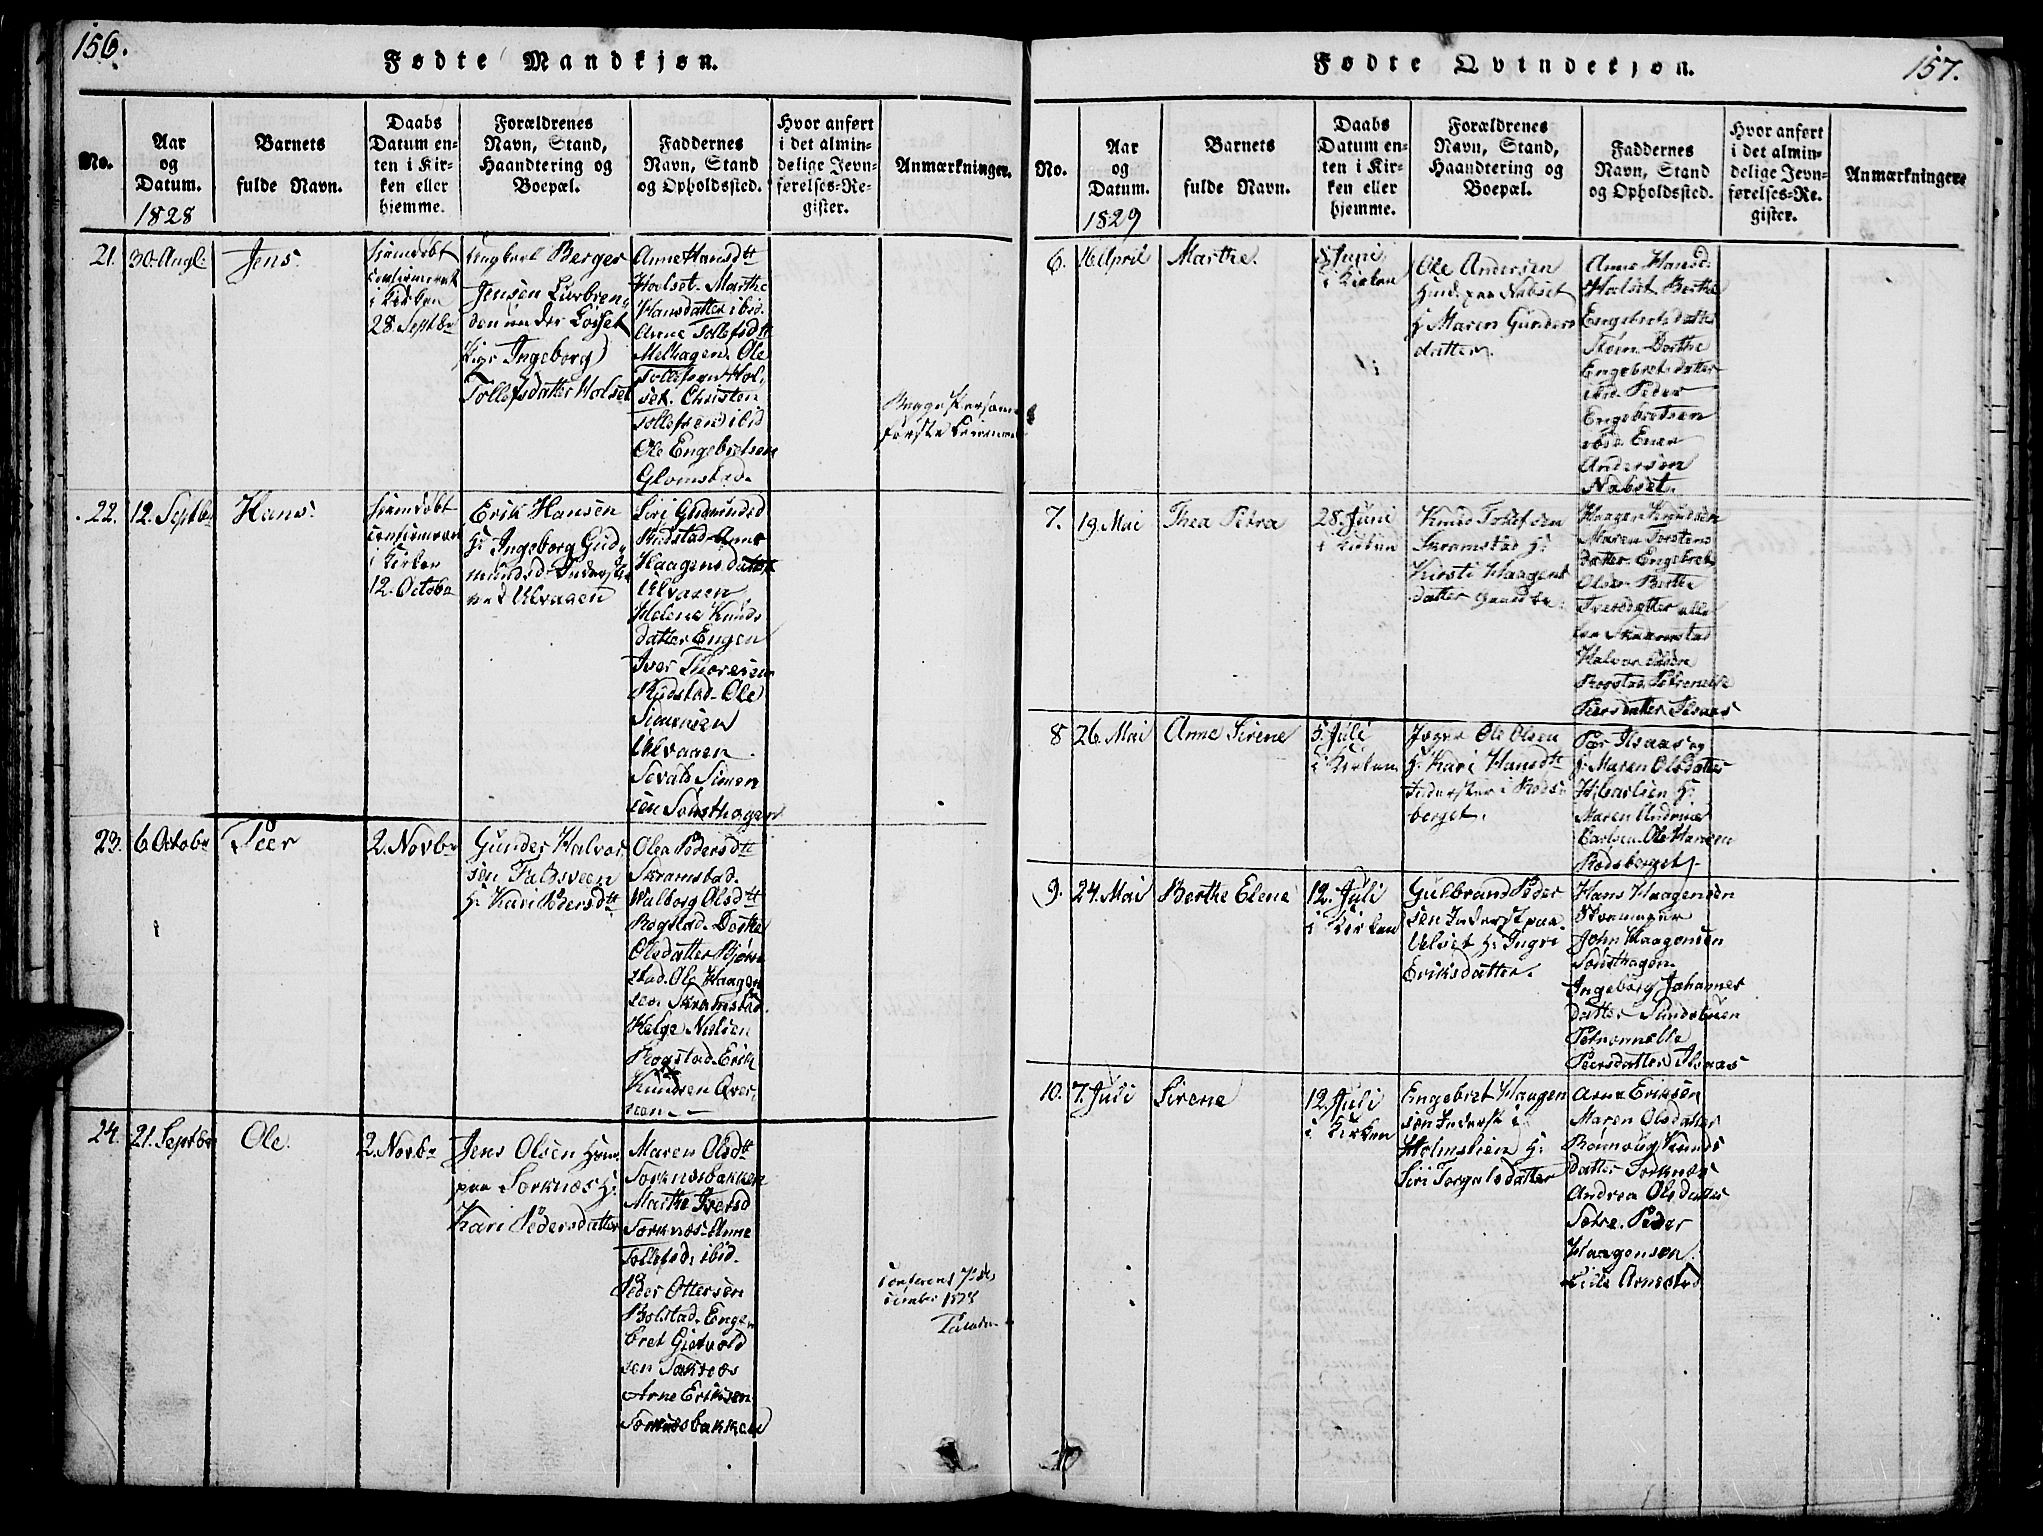 156.
Fødte Mandkjøn.
No.
Aar
og
Datum.
1828
Barnets
fulde Navn.
Daabs
Datum en-
ten i Kir-
ken eller
hjemme.
Forældrenes
Navn, Stand,
Haandtering og
Boepæl.
Faddernes
Navn, Stand
og Opholdssted.
Hvor anført
i det almin-
delige Jevn-
førelses-Re-
gister.
Anmærkninger.
21.
30. Aug.
Jens.
hjemdøbt
i Kirken
28. Septbr
Ungkarl Berger
Jensen
den under Løsset
Pige Ingeborg
Tollefsdatter Holset
Anne Hansdtt
Holset. Marthe
Hansdatter ibid.
Anne Tollefsdtt
Melhagen. Ole
Tollefsen Hol-
set. Christen
Tollefsen ibid
Ole Engebretsen
Glomstad.
22.
12. Septbr
Hans.
hjemdøbt
i Kirken
12. Octobr
Erik Hansen
H: Ingeborg Gud-
mundsd. Inderst
Ulvaaen
Siri Gudmundsd
Rudstad Anne
Haagensdatter
Ulvaaen
Helene Knuds
datter Engen
Iver Thoresen
Rudstad. Ole
Simensen
Ulvaaen
Sevald Simen
sen Sønsthagen
23.
6 Octobr
Peer
2. Novbr
Gunder Halvor
sen Faldsveen
H: Kari Pedersdtt
Olea Pedersdtt
Skramstad.
Valborg Olsdtt
Rogstad. Dorthe
Olsdatter Bjørn
stad. Ole Haagen
sen Skramstad.
Helge Nielsen
Rogstad. Erik
Knudsen Øver-
seen.
24.
21. Septbr
Ole.
2. Novbr
Jens Olsen Huus.
paa Sorknæs H:
Kari Pedersdatter
Maren Olsdtt
Sorknæsbakken
Marthe Iversd
Sorknæs. Anne
Tollefsd. ibid.
Peder Ottersen
Bolstad. Enge-
bret Gietvold
sen Sorknæs
Arne Eriksen
Sorknæsbakken
157.
Fødte Qvindekjøn.
No.
Aar
og
Datum.
1829
Barnets
fulde Navn.
Daabs
Datum en-
ten i Kir-
ken eller
hjemme.
Forældrenes
Navn, Stand,
Haandtering og
Boepæl.
Faddernes
Navn, Stand
og Opholdssted.
Hvor anført
i det almin-
delige Jevn-
førelses-Re-
gister.
Anmærkninger.
6.
16 April
Marthe.
Juni
i Kirken
Ole Andersen
Huusm. paa Nabset
H: Maren Gunders
datter.
Anne Hansd.
Holset Berthe
Engebretsdatter
Steen. Dorthe
Engebretsdatter
ibid. Peder
Engebretsen
ibid. Ener
Andersen
Nabset.
7.
19. Mai
Thea Petra
28. Juni
i Kirken
Knud Tolefsen
Skramstad H:
Kirsti Haagens
datter
Haagen Knudsen
Maren Torstens
datter. Engebret
Olsen Berthe
Iversdatter alle
fra Skramstad
Halvor Olsen
Rogstad. Petronelle
Peersdatter Ilsaas
8
26. Mai
Anne Sirene
5. Juli
i Kirken
Jæger Ole Olsen
H: Kari Hansdtt
Inderster i Røds-
berget.
Peer Ilsaas og
H: Maren Olsdatter
H:
Maren Andrine
Carlsen. Ole Hansen
Rødsberget.
9.
24. Mai
Berthe Elene
12. Juli
i Kirken
Gulbrand Peder
sen Inderst paa
Velset H: Ingri
Eriksdatter.
Hans Haagensen
John Haagensen
Sønsthagen.
Ingeborg Johannes
datter Sundstuen
Petronnelle
Peersdatter Ilsaas
10.
7. Juli
Sirene
12. Juli
i Kirken
Engebret Haagen
sen Inderst i
Holmslien H:
Siri Torgalsdatter
Arne Eriksen
Maren Olsdatter
Rønnoug Knuds
datter Sorknæs
Andrea Olsdatter
Sætre. Peder
Haagensen
Lille Arnestad